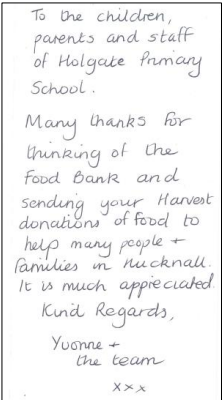 To the children,
parents and staff
of Holgate Primary
School.
Many thanks for
thinking of the
Food Bank and
sending your Harvest
donations of food to
help many people +
families in Hucknall.
It is much appreciated.
Kind Regards,
Yvonne +
the team
xxx